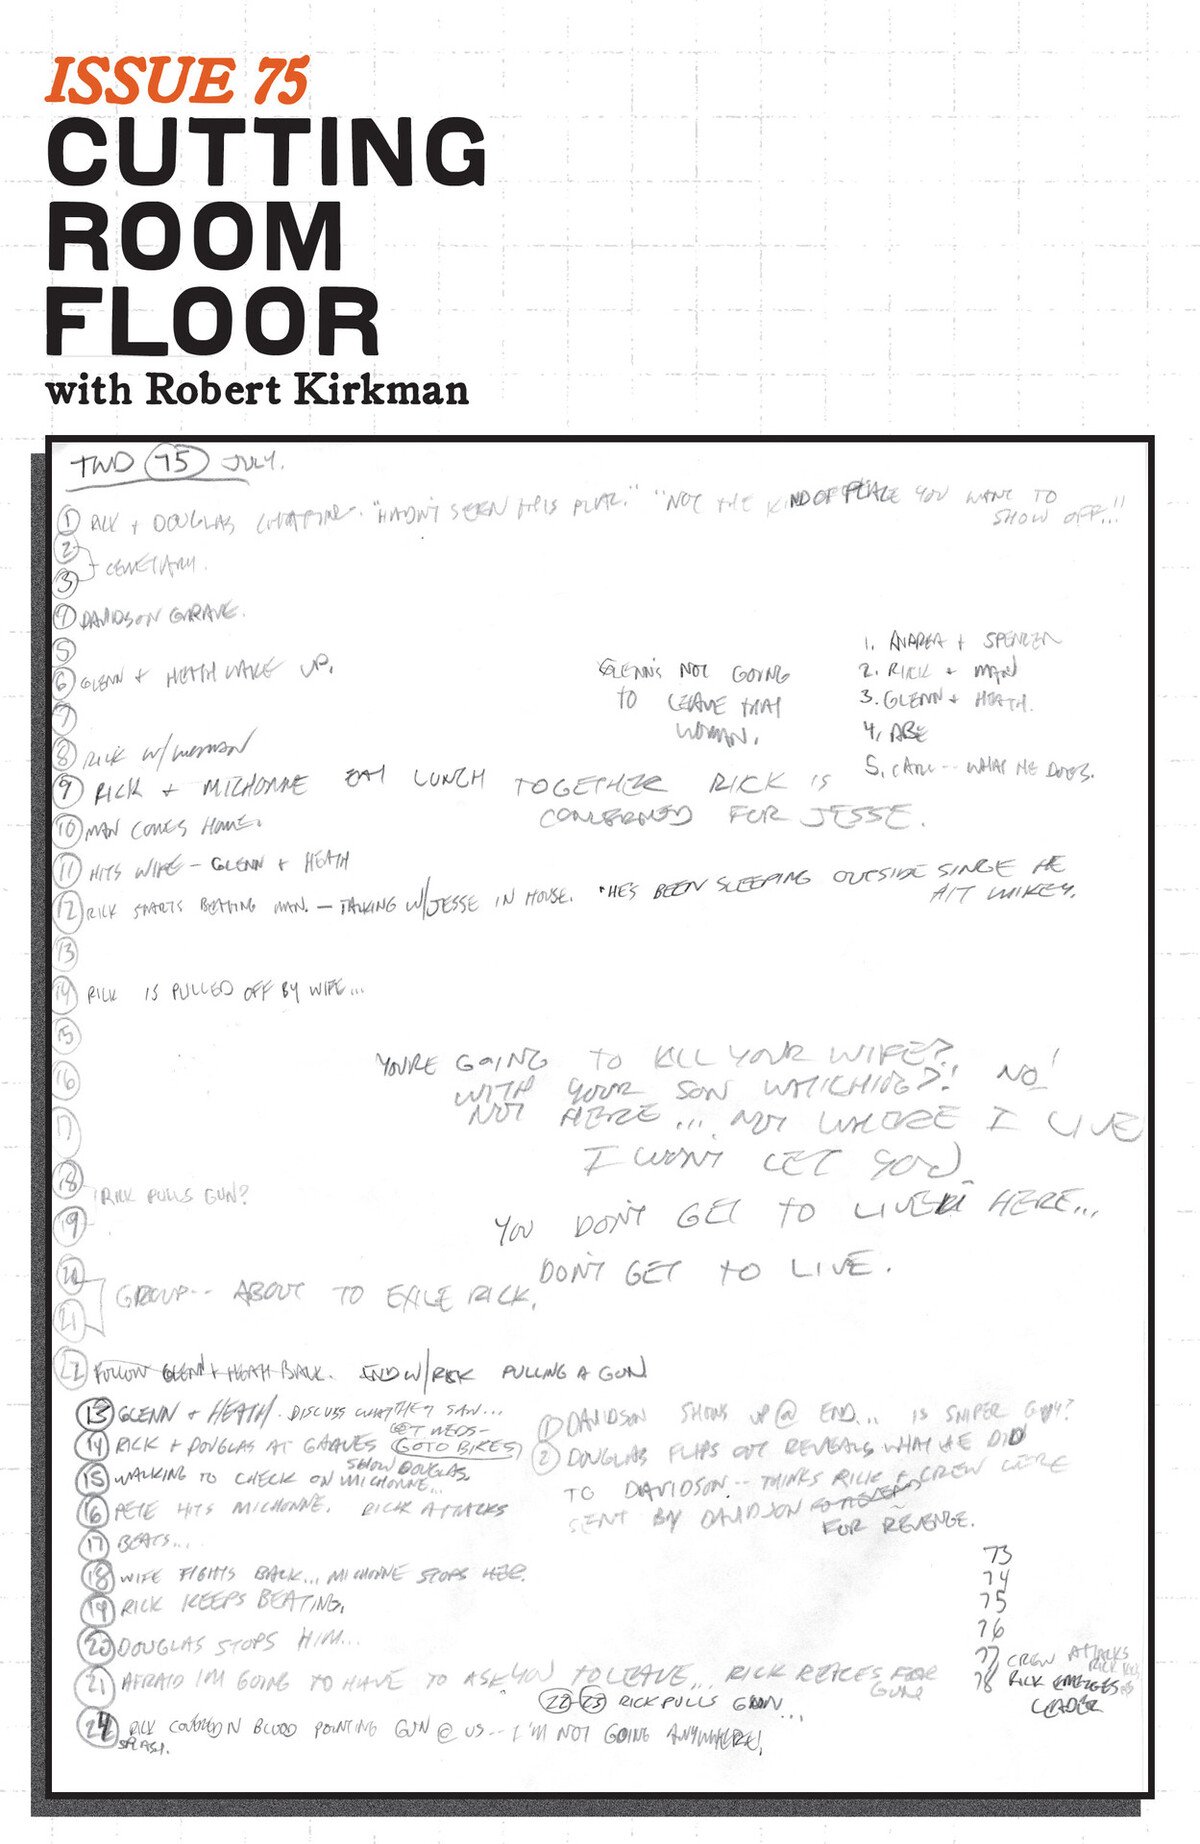 ISSUE 75
CUTTING
ROOM
FLOOR
with Robert Kirkman
TWD 75 JULY.
1 RICK + DOUGLAS CHATTING. "HADN'T SEEN THIS PLACE." "NOT THE KIND OF PLACE YOU WANT TO
SHOW OFF..."
2
3 CEMETARY.
4 DAVIDSON GRAVE.
5
6 GLENN + HEATH WAKE UP.
7
8 RICK W/
9 RICK + MICHONNE EAT LUNCH TOGETHER RICK IS
CONCERNED FOR JESSE.
10 MAN COMES HOME.
11 HITS WIFE - GLENN + HEATH
12 RICK STARTS BEATING MAN. - TALKING W/JESSE IN HOUSE. "HE'S BEEN SLEEPING OUTSIDE SINCE HE
HIT MIKEY.
13
14 RICK IS PULLED OFF BY WIFE...
15
16
17
18 RICK PULLS GUN?
19
20
21 GROUP-- ABOUT TO EXILE RICK.
22 FOLLOW GLENN + HEATH BACK. END W/RICK PULLING A GUN
GLENN'S NOT GOING
TO LEAVE THAT
WOMAN.
1. ANDREA + SPENCER
2. RICK + MAN
3. GLENN + HEATH.
4. ABE
5. CARL -- WHAT HE DOES.
YOU'RE GOING TO KILL YOUR WIFE?
WITH YOUR SON WATCHING?! NO!
NOT HERE... NOT WHERE I LIVE
I WON'T LET YOU.
YOU DON'T GET TO LIVE HERE...
DON'T GET TO LIVE.
13 GLENN + HEATH. DISCUSS WHAT THEY SAW...
GET MEDS-
14 RICK + DOUGLAS AT GRAVES GO TO BIKES
SHOW DOUGLAS.
15 WALKING TO CHECK ON MICHONNE...
16 PETE HITS MICHONNE. RICK ATTACKS
17 BEATS...
18 WIFE FIGHTS BACK... MICHONNE STOPS HER.
19 RICK KEEPS BEATING.
20 DOUGLAS STOPS HIM...
21 AFRAID I'M GOING TO HAVE TO ASK YOU TO LEAVE... RICK REACHES FOR
GUN
22-23 RICK PULLS GUN...
24 RICK COVERED IN BLOOD POINTING GUN @ US -- I'M NOT GOING ANYWHERE!
SPLASH.
1 DAVIDSON SHOWS UP @ END... IS SNIPER GUY?
2 DOUGLAS FLIPS OUT REVEALS WHAT HE DID
TO DAVIDSON -- THINKS RICK + CREW WERE
SENT BY DAVIDSON
FOR REVENGE.
73
74
75
76
77 CREW ATTACKS
78 RICK EMERGES AS
LEADER